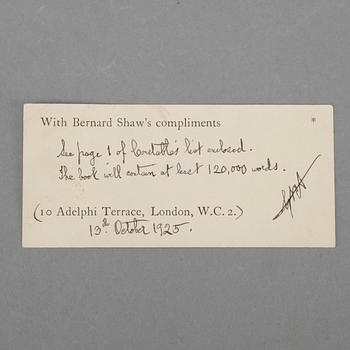 With Bernard Shaw's compliments *
See page 1 of Constable's list enclosed.
The book will contain at least 120,000 words.
(10 Adelphi Terrace, London, W.C. 2.)
13th October 1925.